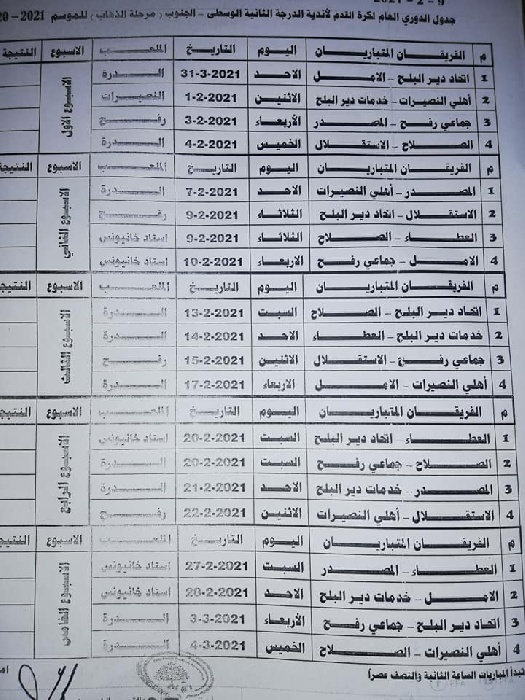 جدول الدوري العام لكرة القدم لأندية الدرجة الثانية الوسطى - الجنوب ( مرحلة الذهاب ) للموسم 2021 - 20
م الفريقان المتباريان اليوم التاريخ الملعب الاسبوع النتيجة
1 اتحاد دير البلح - الامل الاحد 31-3-2021 الدرة
2 أهلي النصيرات - خدمات دير البلح الاثنين 1-2-2021 النصيرات
3 جماعي رفح - المصدر الأربعاء 3-2-2021 رفح
4 الصلاح - الاستقلال الخميس 4-2-2021 الدرة
الاسبوع الاول
م الفريقان المتباريان اليوم التاريخ الملعب الاسبوع النتيجة
1 المصدر - أهلي النصيرات الاحد 7-2-2021 الدرة
2 الاستقلال - اتحاد دير البلح الثلاثاء 9-2-2021 رفح
3 العطاء - الصلاح الثلاثاء 9-2-2021 استاد خانيونس
4 الامل - جماعي رفح الاربعاء 10-2-2021 استاد خانيونس
الاسبوع الثاني
م الفريقان المتباريان اليوم التاريخ الملعب الاسبوع النتيجة
1 اتحاد دير البلح - الصلاح السبت 13-2-2021 الدرة
2 خدمات دير البلح - العطاء الاحد 14-2-2021 الدرة
3 جماعي رفح - الاستقلال الاثنين 15-2-2021 رفح
4 أهلي النصيرات - الامل الاربعاء 17-2-2021 الدرة
الاسبوع الثالث
م الفريقان المتباريان اليوم التاريخ الملعب الاسبوع النتيجة
1 العطاء - اتحاد دير البلح السبت 20-2-2021 استاد خانيونس
2 الصلاح - جماعي رفح السبت 20-2-2021 الدرة
3 المصدر - خدمات دير البلح الاحد 21-2-2021 الدرة
4 الاستقلال - أهلي النصيرات الاثنين 22-2-2021 رفح
الاسبوع الرابع
م الفريقان المتباريان اليوم التاريخ الملعب الاسبوع النتيجة
1 العطاء - المصدر السبت 27-2-2021 استاد خانيونس
2 الامل - خدمات دير البلح الاحد 28-2-2021 استاد خانيونس
3 اتحاد دير البلح - جماعي رفح الأربعاء 3-3-2021 الدرة
4 أهلي النصيرات - الصلاح الخميس 4-3-2021 الدرة
الاسبوع الخامس
تبدأ المباريات الساعة الثانية والنصف عصرا)